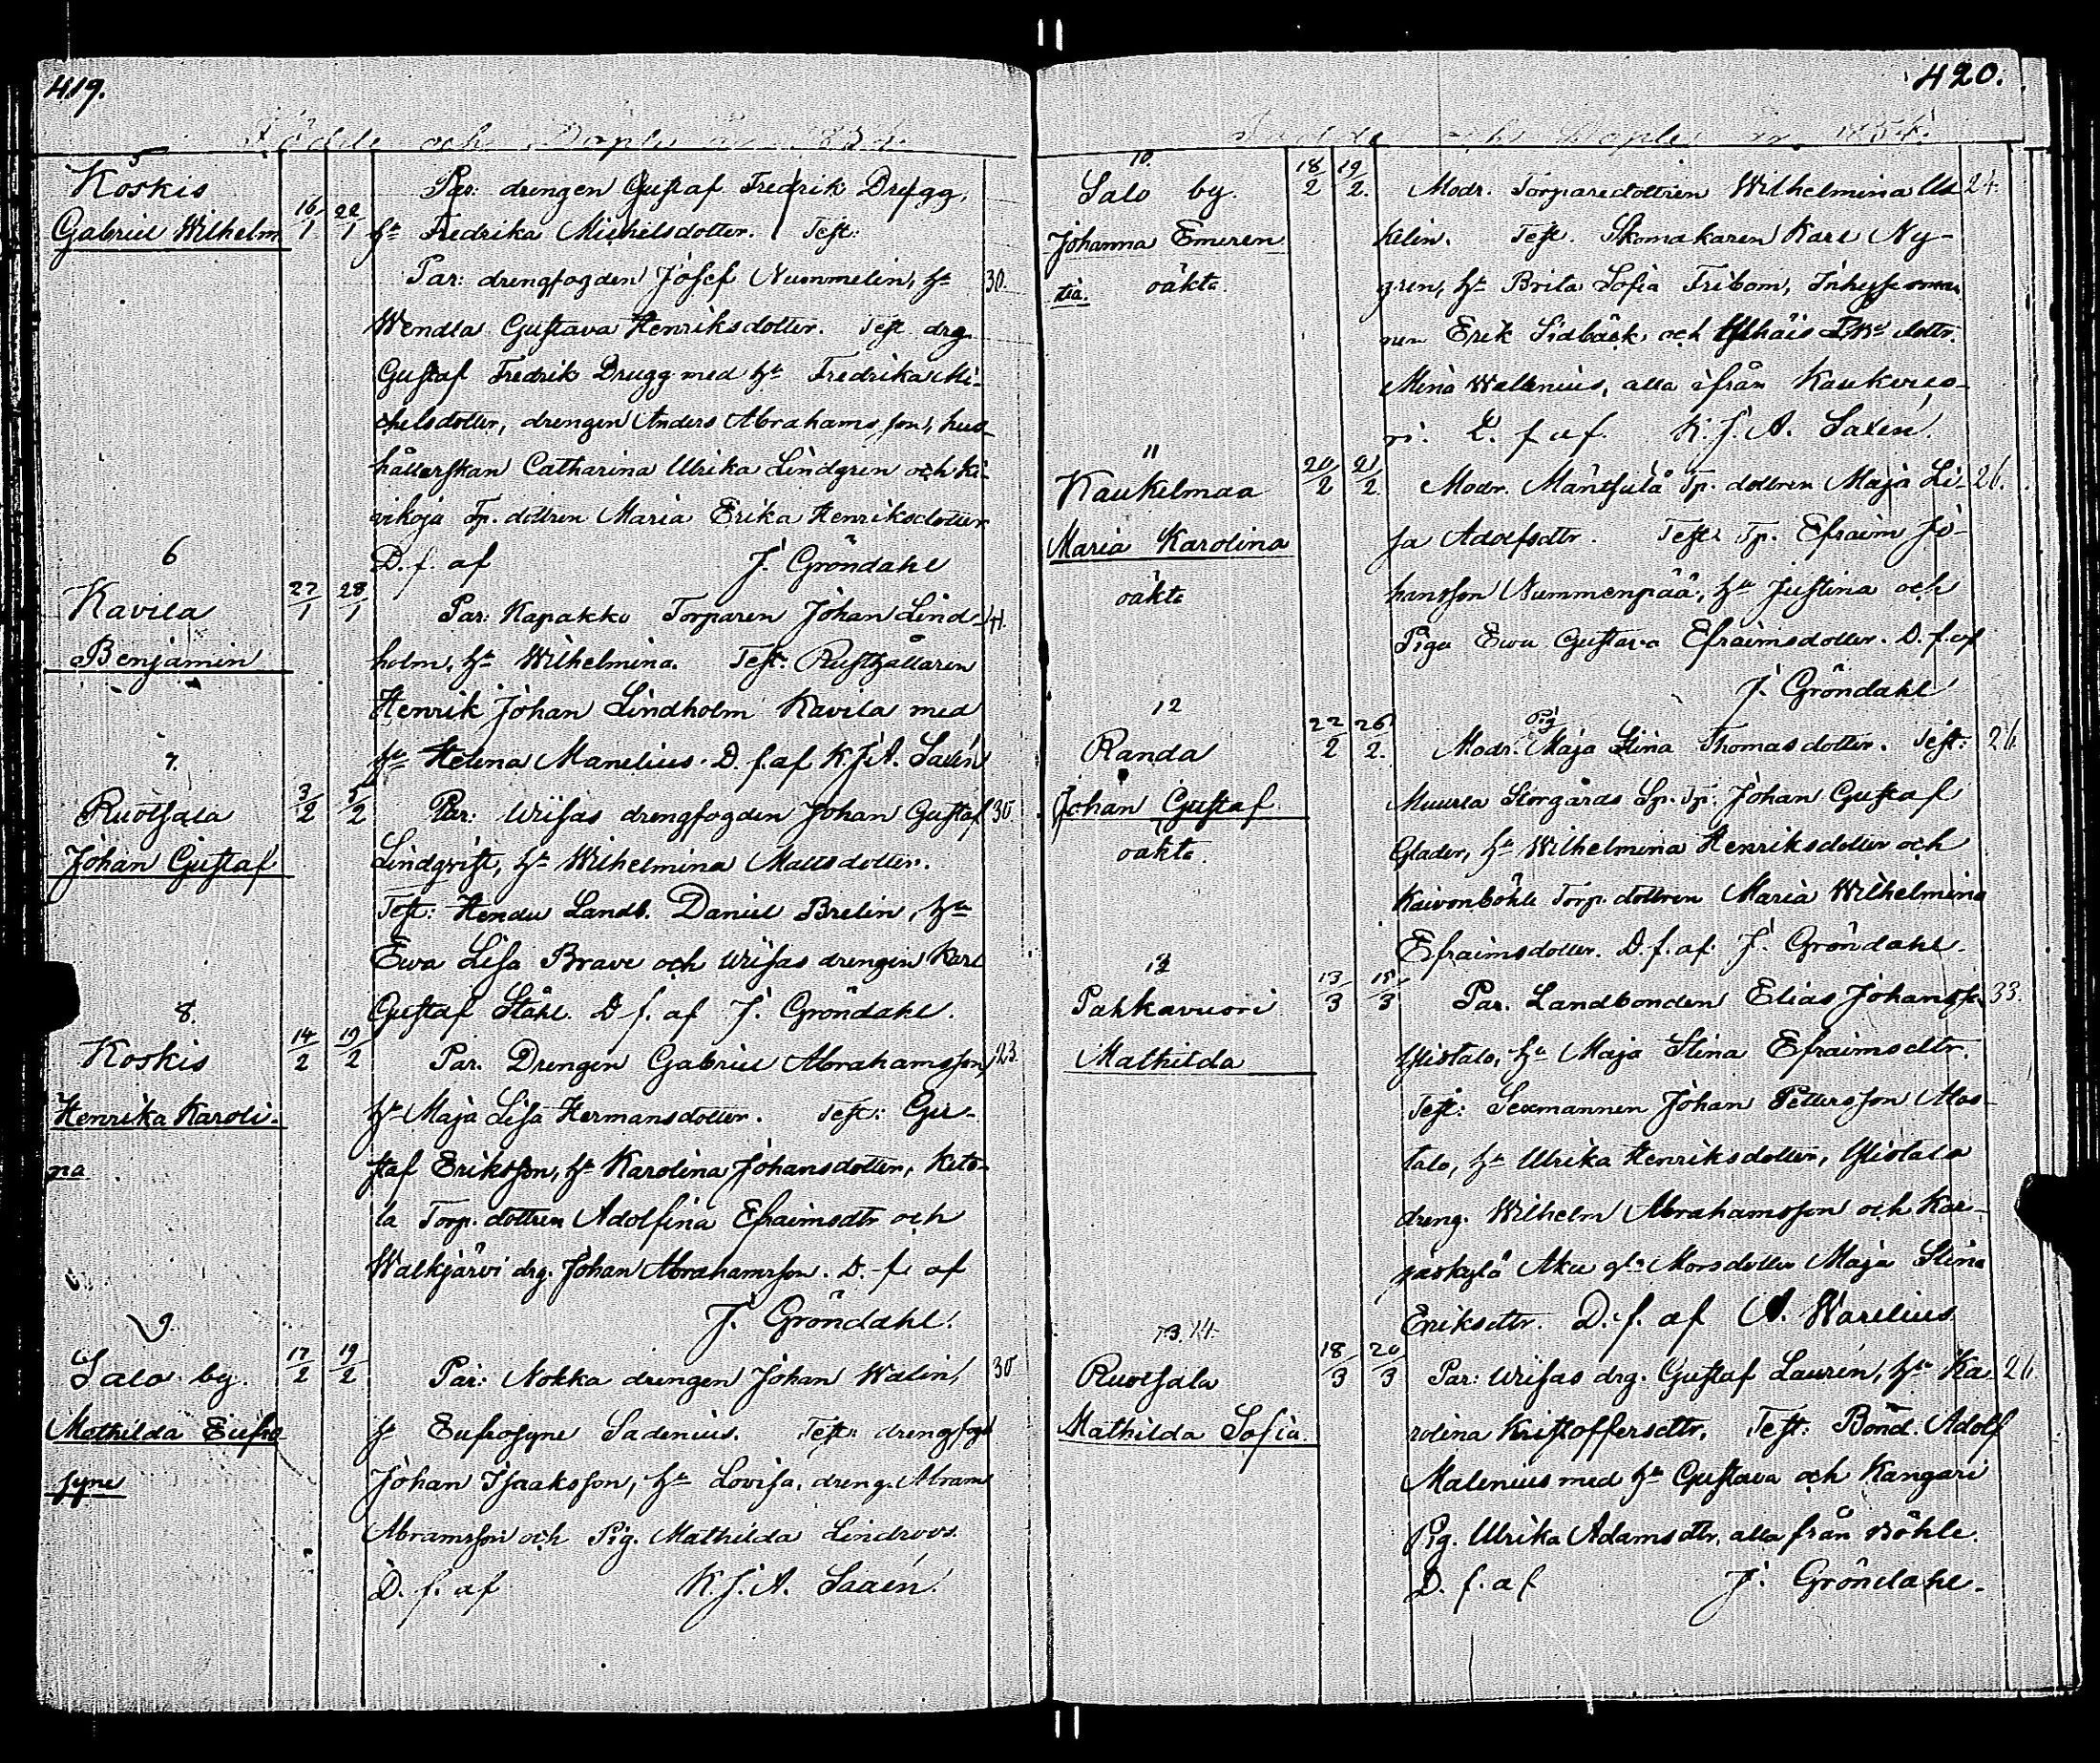 419.
Födde och Döpte år 1854.
5
Koskis
Gabriel Wilhelm
16/1 22/1
Par: drengen Gustaf Fredrik Drugg,
hu Fredrika Michelsdotter. Test:
Par: drengfogden Josef Nummelin, hu
30.
Wendla Gustava Henriksdotter. Test drg.
Gustaf Fredrik Drugg med hu Fredrika Mi-
chelsdotter, drengen Anders Abrahamsson, hus-
hållerskan Catharina Ulrika Lindgren och Ki-
vikoja Tp. dottren Maria Erika Henriksdotter
D. f. af J. Gröndahl
6
Kavila
Benjamin
27/1 28/1
Par: Kapakko Torparen Johan Lind-
41.
holm, hu Wilhelmina. Test: Rusthållaren
Henrik Johan Lindholm Kavila med
hu Helena Manelius. D. f. af K. J. A. Saxén
7.
Ruotsala
Johan Gustaf
3/2 5/2
Par: Wrisas drengfogden Johan Gustaf
30
Lindqvist, hu Wilhelmina Mattsdotter.
Test: Hendu Landb. Daniel Brelin, hu
Ewa Lisa Brave och Wrisas drengen Karl
Gustaf Ståhl. D. f. af J. Gröndahl.
8.
Koskis
Henrika Karoli-
na
14/2 19/2
Par. Drengen Gabriel Abrahamsson,
23.
hu Maja Lisa Hermansdotter. Test: Gu-
staf Eriksson, hu Karolina Johansdotter, Keto-
la Torp. dottren Adolfina Efraimsdtr och
Walkjärvi drg. Johan Abrahamsson. D. f. af
J. Gröndahl.
9.
Salo by.
Mathilda Eufro
syne
17/2 19/2
Par: Nokka drengen Johan Walin,
30
h Eufrosyne Sadenius. Test: drengfogd
Johan Isaaksson, hu Lovisa, dreng. Abram
Abramsson och Pig. Mathilda Lindroos.
D. f. af K. J. A. Saxén.
420.
Födde och Döpte år 1854.
10.
Salo by.
Johanna Emeren
tia. oäkta.
18/2 19/2.
Modr. Torparedottren Wilhelmina
24.
helin. Test. Skomakaren Karl Ny-
gren, hu Brita Sofia Fribom, Inhyse man
nen Erik Sidbäck och dottr.
Mina Wallenius, alla ifrån Kaukvuo-
ri. D. f. af. K. J. A. Saxén.
11
Kaukelmaa
Maria Karolina
oäkta
20/2 21/2.
Modr. Mäntsulå Tp. dottren Maja Li-
26.
sa Adolfsdtr. Test: Tp. Efraim Jo-
hansson Nummenpää, hu Justina och
Piga Ewa Gustava Efraimsdotter. D. f. af
J. Gröndahl
12
Randa
Johan Gustaf
oäkta.
22/2 26/2.
Modr. Pig Maja Stina Thomasdotter. Test:
26.
Muurla Storgårds Sp. Tp. Johan Gustaf
Glader, hu Wilhelmina Henriksdotter och
Kaivonböhle Torp. dottren Maria Wilhelmina
Efraimsdotter. D. f. af. J. Gröndahl.
13
Pahkavuori
Mathilda
13/3 15/3
Par. Landbonden Elias Johansson
33.
Ylistalo, hu Maja Stina Efraimsdtr.
Test: Sexmannen Johan Pettersson Alas-
talo, hu Ulrika Henriksdotter, Ylistalo
dreng. Wilhelm Abrahamsson och Kar-
jaskylä Aku gl: Morsdotter Maja Stina
Eriksdtr. D. f. af A. Warelius
14.
Ruotsala
Mathilda Sofia.
18/3 20/3
Par: Wrisas drg. Gustaf Laurén, hu Ka-
26.
rolina Kristoffersdtr. Test: Bond. Adolf
Malenius med hu Gustava och Kangari
Pig. Ulrika Adamsdtr, alla från Böhle.
D. f. af J. Gröndahl.